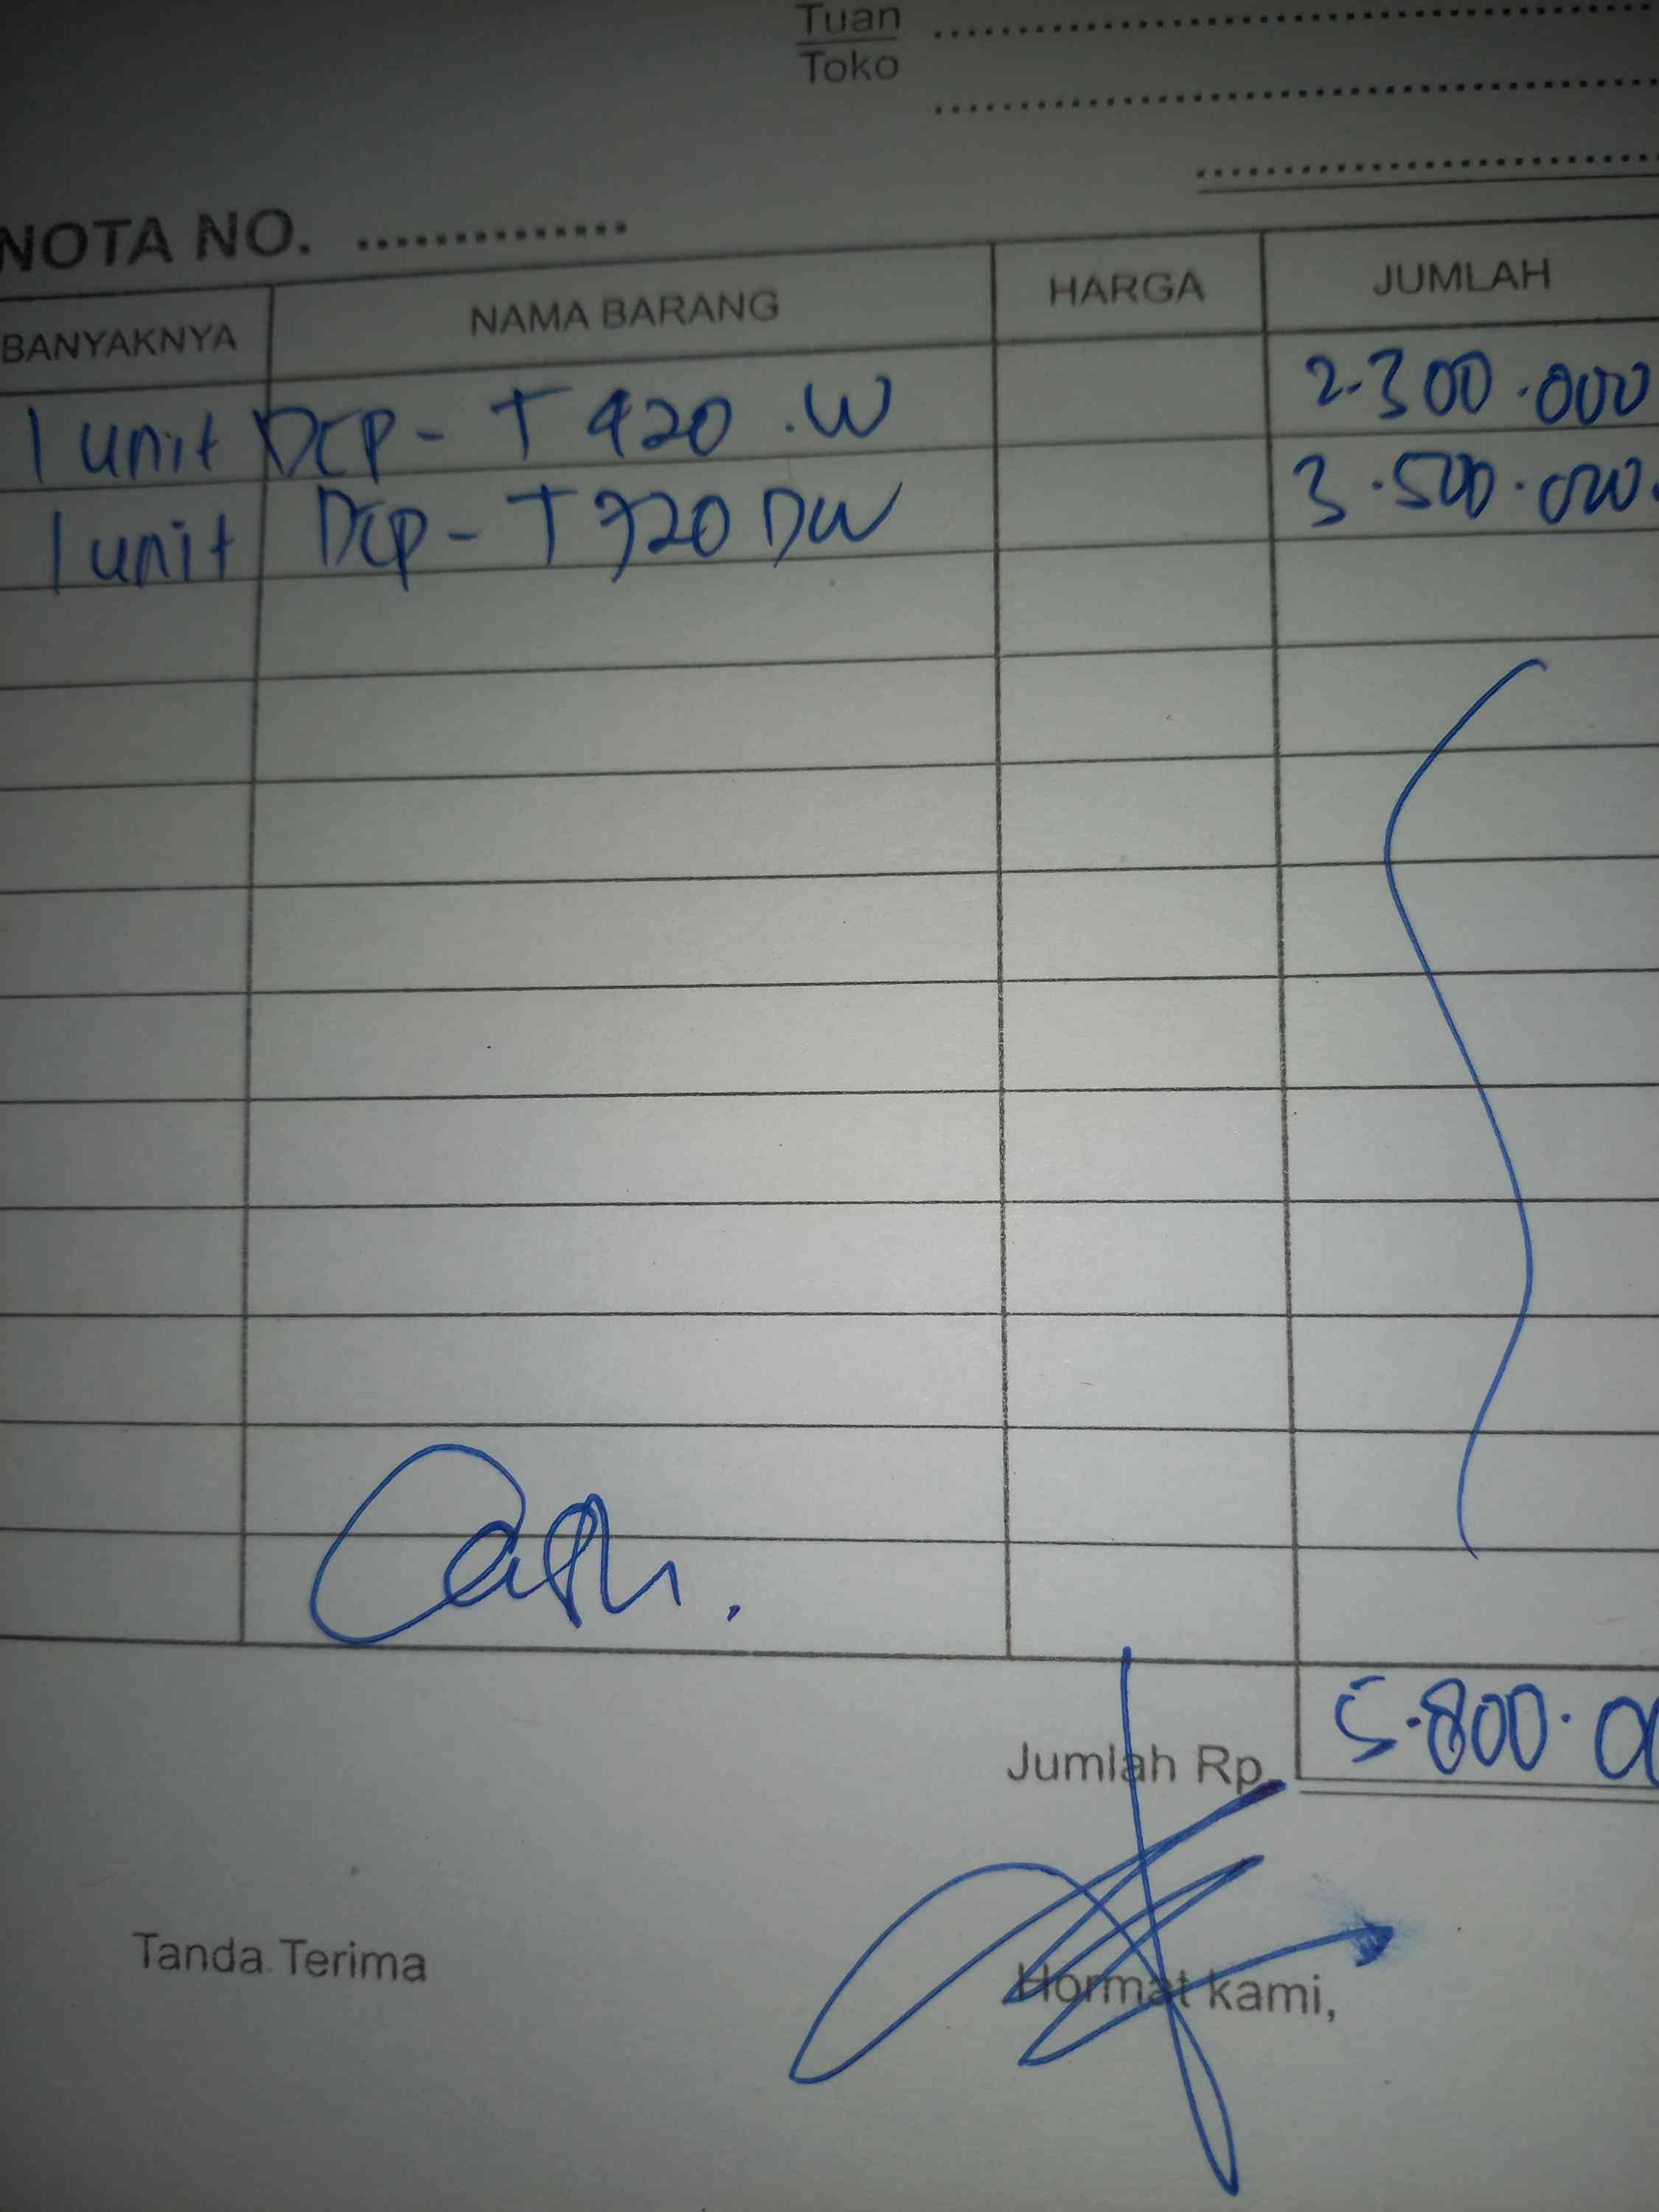 Tuan
Toko
NOTA NO. ................
BANYAKNYA NAMA BARANG HARGA JUMLAH
1 unit DCP - T 420 . W 2.300.000
1 unit DCP - T 720 DW 3.500.000.
Cash.
Jumlah Rp. 5.800.00
Tanda Terima Hormat kami,